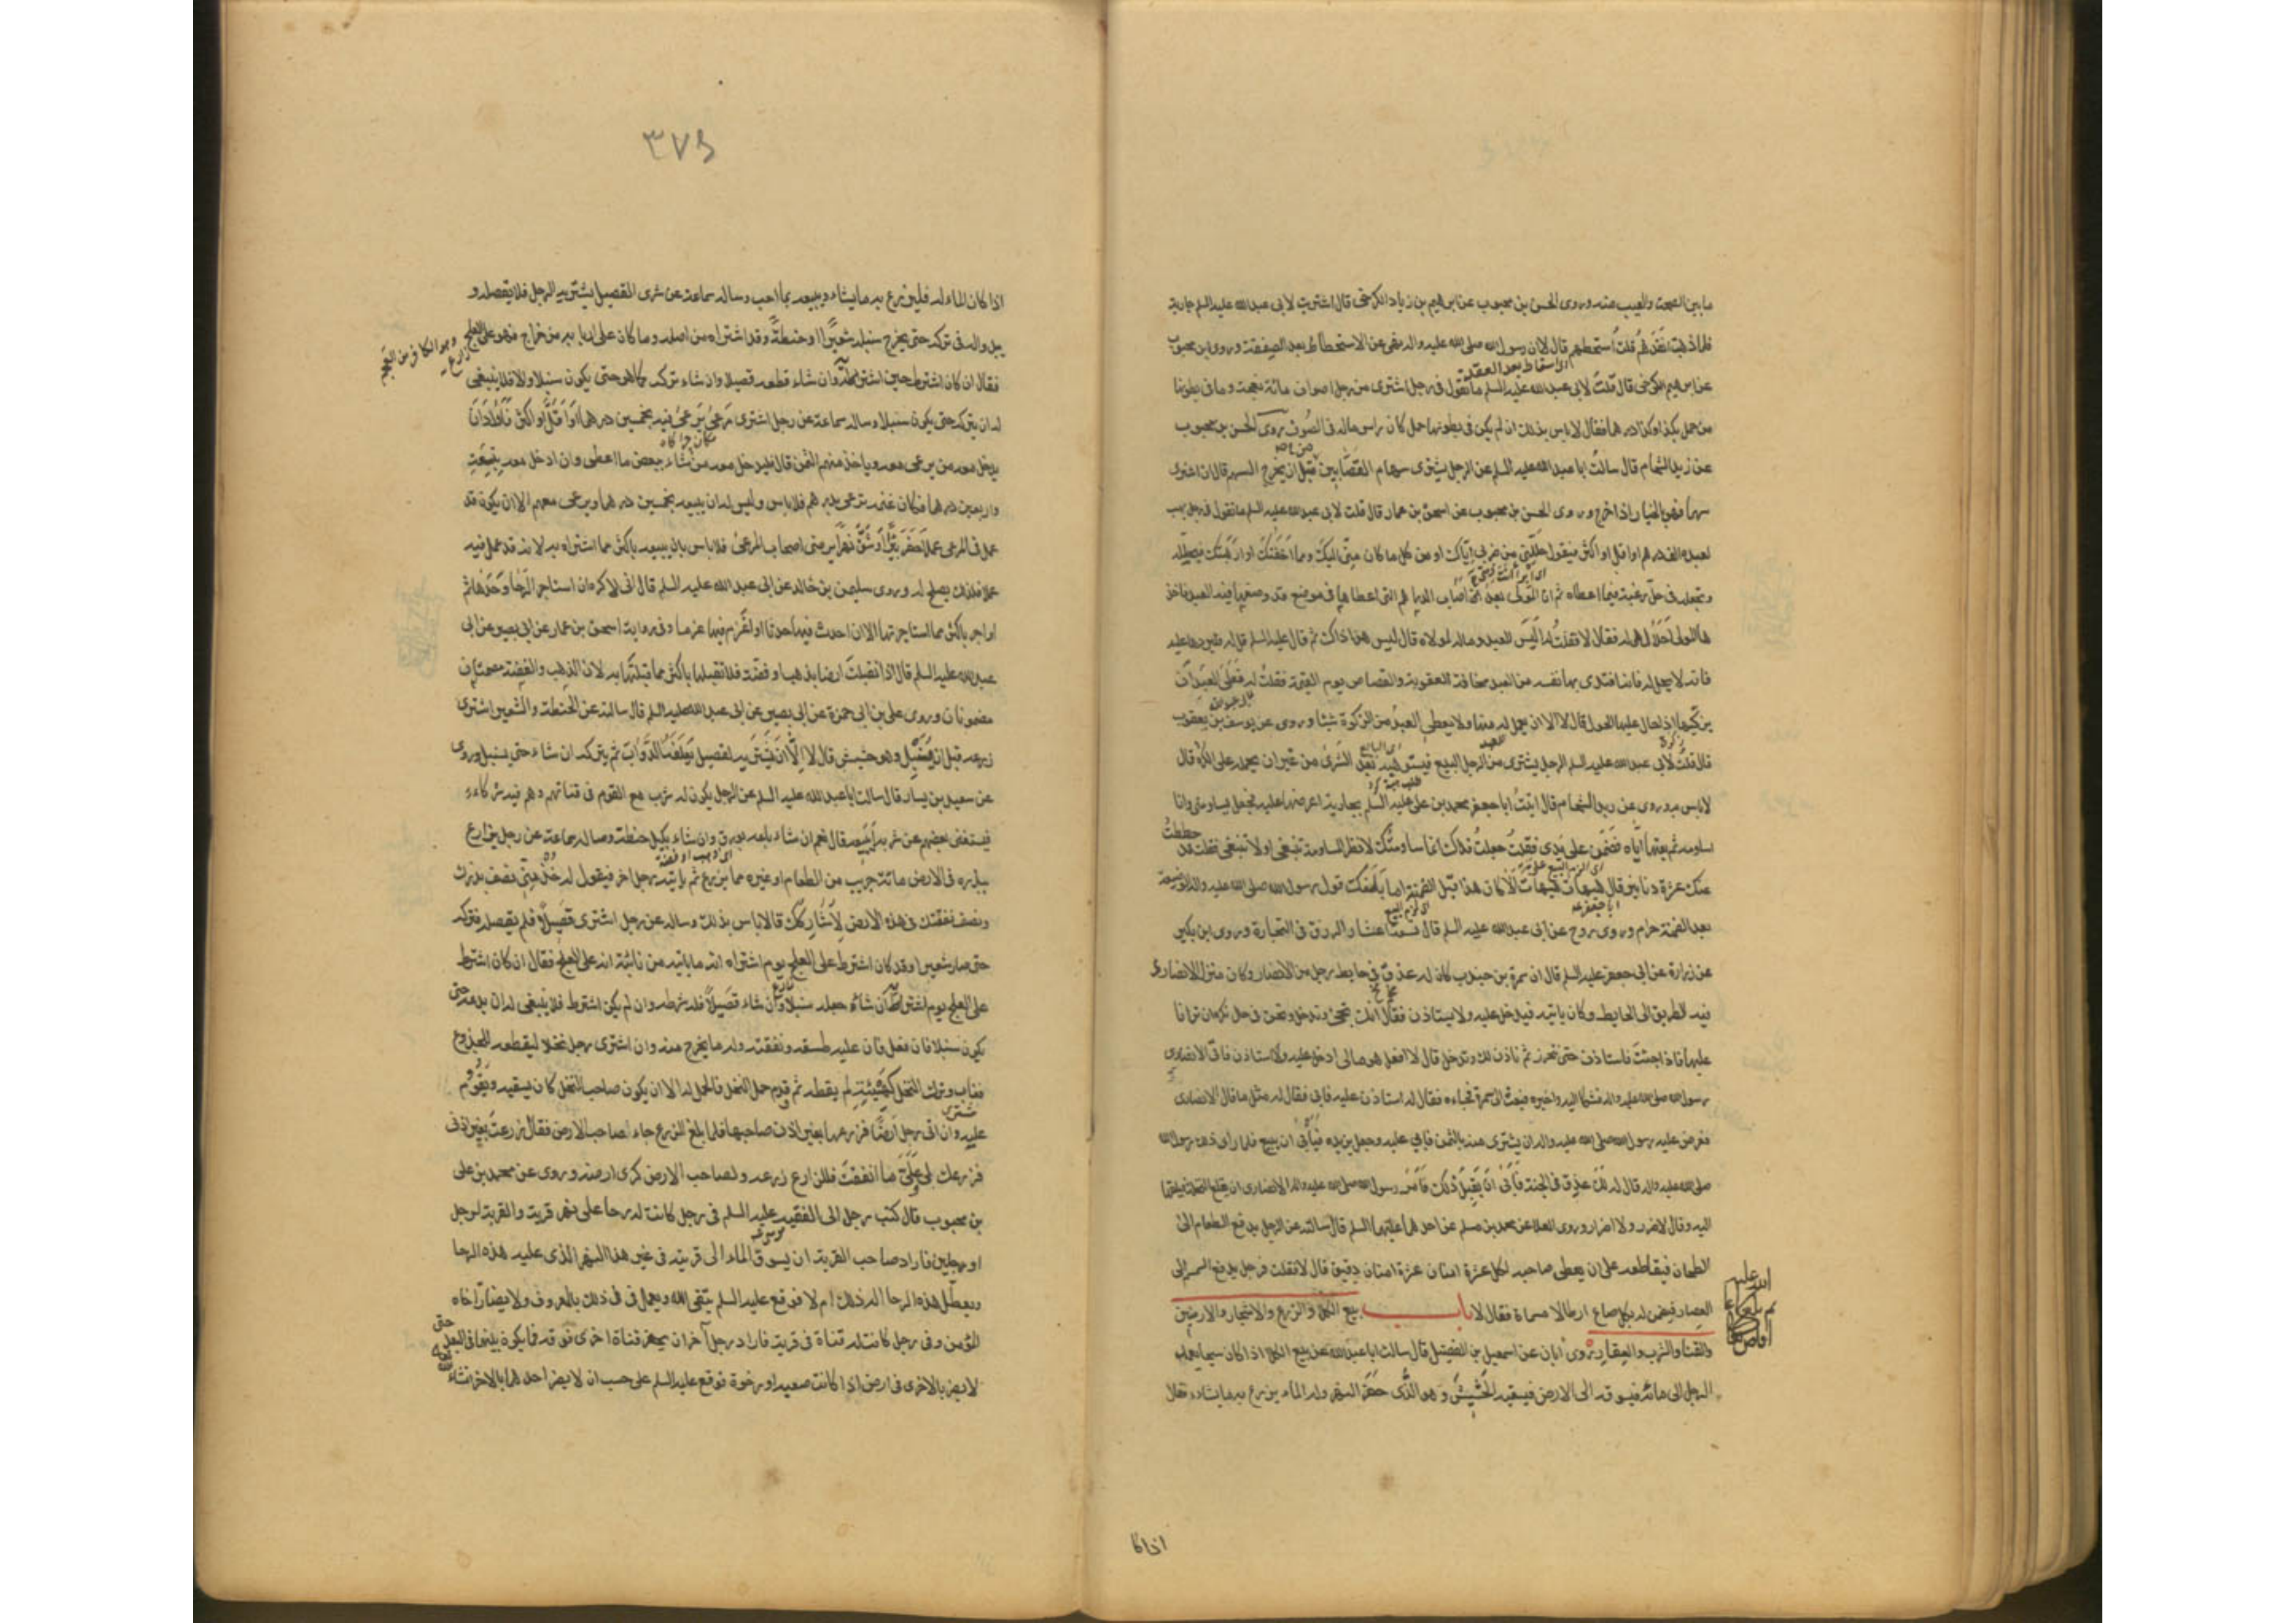 ما بين الصحة والعيب منه وروى الحسن بن محبوب عن ابرهيم بن زياد الكرخى قال اشتريت لابى عبد الله عليه السلم جارية
فلما ذهبت انقدهم قلت استحطهم قال لا ان رسول الله صلى الله عليه واله نهى عن الاستحطاط بعد الصفقة وروى ابن محبوب
اى اسقاط بعد العقد
عن ابرهيم الكرخى قال قلت لابى عبد الله عليه السلم ما تقول فى رجل اشترى من رجل اصواف مائة نعجة وما فى بطونها
من حمل بكذا وكذا درهما فقال لا باس بذلك ان لم يكن فى بطونها حمل كان راس ماله فى الصوف وروى الحسن بن محبوب
عن زيد الشحام قال سالت ابا عبد الله عليه السلم عن الرجل يشترى سهام القصابين من قبل ان يخرج السهم قال ان اشترى
سهما فهو بالخيار اذا خرج وروى الحسن بن محبوب عن اسحق بن عمار قال قلت لابى عبد الله عليه السلم ما تقول فى رجل يهب
لعبده الف درهم او اقل او اكثر فيقول حللنى من ضربى اياك او من كل ما كان منى اليك ومما اخفتك او ارهبتك فيحلله
ويجعله فى حل رغبة فيما اعطاه ثم ان المولى بعد اصاب الدراهم التى اعطاها فى موضع قد وضعها فيه العبد فاخذ
ها المولى احلال هى له فقال لا فقلت له اليس العبد وماله لمولاه قال ليس هذا ذاك ثم قال عليه السلم قل له فليردها عليه
فانه لا يحل له فانه افتدى بها نفسه من العبد مخافة العقوبة والقصاص يوم القيمة فقلت له فعلى العبد ان
يزكيها اذا حال عليها الحول قال لا الا ان يعمل له بها ولا يعطى العبد من الزكوة شيئا وروى عن يوسف بن يعقوب
قال قلت لابى عبد الله عليه السلم الرجل يشترى من الرجل البيع فيستوهبه بعد الشرى من غير ان يحمله على الكره قال
لا باس به وروى عن زيد الشحام قال اتيت ابا جعفر محمد بن على عليه السلم بجارية اعرضها عليه فجعل يساومنى وانا
اساومه ثم بعتها اياه فضمن على يدى فقلت جعلت فداك انما ساومتك لانظر المساومة تنبغى او لا تنبغى فقلت قد حططت
عنك عشرة دنانير فقال هيهات هيهات الا كان هذا قبل الضمة اما بلغك قول رسول الله صلى الله عليه واله الوضيعة
بعد الضمة حرام وروى روح عن ابى عبد الله عليه السلم قال تسعة اعشار الرزق فى التجارة وروى ابن بكير
عن زرارة عن ابى جعفر عليه السلم قال ان سمرة بن جندب كان له عذق فى حايط رجل من الانصار وكان منزل الانصارى
فيه الطريق الى الحايط وكان ياتيه فيدخل عليه ولا يستاذن فقال انك تجئ وتدخل ونحن فى حال نكره ان ترانا
عليها فاذا جئت فاستاذن حتى نتحرز ثم ناذن لك وتدخل قال لا افعل هو مالى ادخل عليه ولا استاذن فاتى الانصارى
رسول الله صلى الله عليه واله فشكا اليه واخبره فبعث الى سمرة فجاءه فقال له استاذن عليه فابى فقال له مثل ما قال الانصارى
فعرض عليه رسول الله صلى الله عليه واله ان يشترى منه بالثمن فابى عليه وجعل يزيده فيابى ان يبيع فلما راى ذلك رسول الله
صلى الله عليه واله قال له لك عذق فى الجنة فابى ان يقبل ذلك فامر رسول الله صلى الله عليه واله الانصارى ان يقلع النخلة فيلقيها
اليه وقال لا ضرر ولا اضرار وروى العلا عن محمد بن مسلم عن احدهما عليهما السلم قال سالته عن الرجل يدفع الطعام الى
الطحان فيقاطعه على ان يعطى صاحبه لكل عشرة امنان عشرة امنان دقيق قال لا فقلت فرجل يدفع السمسم الى
العصار فيضمن له بكل صاع ارطالا مسماة فقال لا باب بيع الكلاء والزرع والاشجار والارضين
والقنا والشرب والعقار روى أبان عن اسمعيل بن الفضيل قال سالت ابا عبد الله عن بيع الكلا اذا كان سيحا يعمد
الرجل الى مائه فيسوقه الى الارض فيسقيه الحشيش وهو الذى حفر النهر وله الماء يزرع به ما يشاء فقال
اذا كا
٣٧٤
اذا كان الماء له فليزرع به ما يشاء ويبيعه بما احب وساله سماعة عن شرى القصيل يشتريه الرجل فلا يقصله و
يبدو له فى تركه حتى يخرج سنبله شعيرا او حنطة وقد اشتراه من اصله وما كان على اربابه من خراج فهو على العلج
وهو الكافر من العجم
فقال ان كان اشترط حين اشتراه ان شاء قطعه قصيلا وان شاء تركه كما هو حتى يكون سنبلا والا فلا ينبغى
له ان يتركه حتى يكون سنبلا وساله سماعة عن رجل اشترى مرعى يرعى فيه بخمسين درهما او اقل او اكثر فاراد ان
يدخل معه من يرعى معه وياخذ منهم الثمن قال فليدخل معه من شاء ببعض ما اعطى وان ادخل معه بتسعة
واربعين درهما فكان غنمه ترعى بدرهم فلا باس وليس له ان يبيعه بخمسين درهما ويرعى معهم الا ان يكون قد
عمل فى المرعى عملا حفر بئرا او شق نهرا برضى اصحاب المرعى فلا باس بان يبيعه باكثر مما اشتراه به لانه قد عمل فيه
عملا فلذلك يصلح له وروى سليمن بن خالد عن ابى عبد الله عليه السلم قال انى لاكره ان استاجر الرحا وحدها ثم
اواجر باكثر مما استاجرتها الا ان احدث فيها حدثا او اغرم فيها غرما وفى رواية اسحق بن عمار عن ابى بصير عن ابى
عبد الله عليه السلم قال اذا تقبلت ارضا بذهب او فضة فلا تقبلها باكثر مما قبلتها به لان الذهب والفضة مصمتان
مضمونان وروى على بن ابى حمزة عن ابى بصير عن ابى عبد الله عليه السلم قال سالته عن الحنطة والشعير اشترى
زرعه قبل ان يسنبل وهو حشيش قال لا الا ان يشتريه لقصيل يعلفه الدواب ثم يتركه ان شاء حتى يسنبل وروى
عن سعيد بن يسار قال سالت ابا عبد الله عليه السلم عن الرجل يكون له شرب مع القوم فى قناتهم وهم فيه شركاء
فيستغنى بعضهم عن شربه أيبيعه قال نعم ان شاء باعه بورق وان شاء بكيل حنطة وساله سماعة عن رجل يزارع
اى ذهب او فضة
ببذره فى الارض مائة جريب من الطعام او غيره مما يزرع ثم ياتيه رجل اخر فيقول له خذ منى نصف بذرك
ونصف نفقتك فى هذه الارض لاشاركك قال لا باس بذلك وساله عن رجل اشترى قصيلا فلم يقصله وتركه
حتى صار شعيرا وقد كان اشترط على العلج يوم اشتراه انه ما ياتيه من نائبة انه على العلج فقال ان كان اشترط
على العلج يوم اشتراه ان شاء جعله سنبلا وان شاء قصيلا فله شرطه وان لم يكن اشترط فلا ينبغى له ان يدعه حتى
يكون سنبلا فان فعل فان عليه طسقه ونفقته وله ما يخرج منه وان اشترى رجل نخلا ليقطعه للجذوع
فغاب وترك النخل كهيئته لم يقطع ثم قدم وقد حمل النخل فالحمل له الا ان يكون صاحب النخل كان يسقيه ويقوم
عليه وان اتى رجل ارضا فزرعها بغير اذن صاحبها فلما بلغ الزرع جاء صاحب الارض فقال زرعت بغير اذنى
فزرعك لى وعلى ما انفقت فللزارع زرعه ولصاحب الارض كرى ارضه وروى عن محمد بن على
بن محبوب قال كتب رجل الى الفقيه عليه السلم فى رجل كانت له رحا على نهر قرية والقرية لرجل
او رجلين فاراد صاحب القرية ان يسوق الماء الى قريته فى غير هذا النهر الذى عليه هذه الرحا
ويعطل هذه الرحا اله ذلك ام لا فوقع عليه السلم يتقى الله ويعمل فى ذلك بالمعروف ولا يضار اخاه
المؤمن وفى رجل كانت له قناة فى قرية فاراد رجل آخر ان يحفر قناة اخرى فوقه فما يكون بينهما فى البعد حتى
لا يضر بالاخرى فى ارض اذا كانت صعبة او رخوة فوقع عليه السلم على حسب ان لا يضر احدهما بالاخر انشاء الله